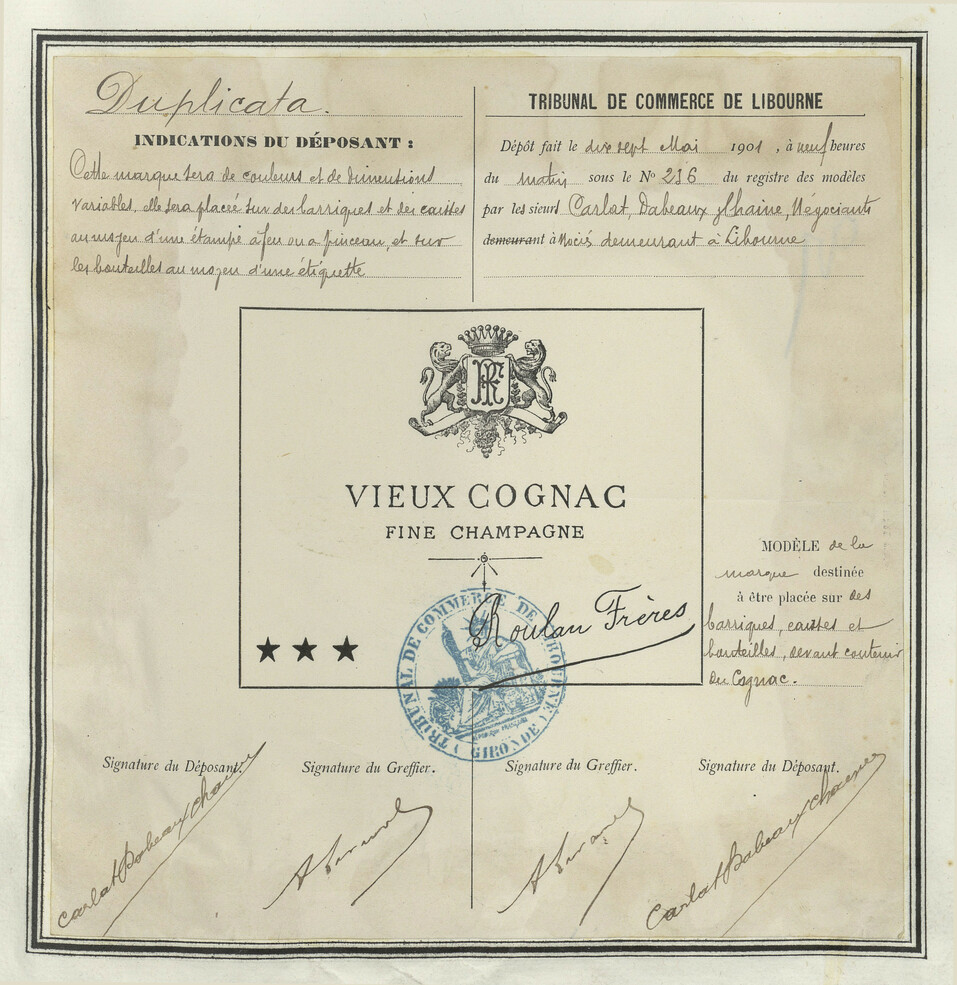 Duplicata.
INDICATIONS DU DÉPOSANT :
Cette marque sera de couleurs et de dimensions
variables, elle sera placée sur des barriques et des caisses
au moyen d'une étampe à feu ou a pinceau, et sur
les bouteilles au moyen d'une étiquette
TRIBUNAL DE COMMERCE DE LIBOURNE
Dépôt fait le dix sept Mai 1901, à neuf heures
du matin sous le No 236 du registre des modèles
par les sieurs Carlat, Dabeaux & Chaine, Négociants
demeurant à Libourne
VIEUX COGNAC
FINE CHAMPAGNE
Roulan Frères
★ ★ ★
TRIBUNAL DE COMMERCE DE LIBOURNE
(GIRONDE)
MODÈLE de la
marque destinée
à être placée sur des
barriques, caisses et
bouteilles, devant contenir
du Cognac.
Signature du Déposant. Signature du Greffier. Signature du Greffier. Signature du Déposant.
Carlat Dabeaux Chaine
Carlat Dabeaux Chaine